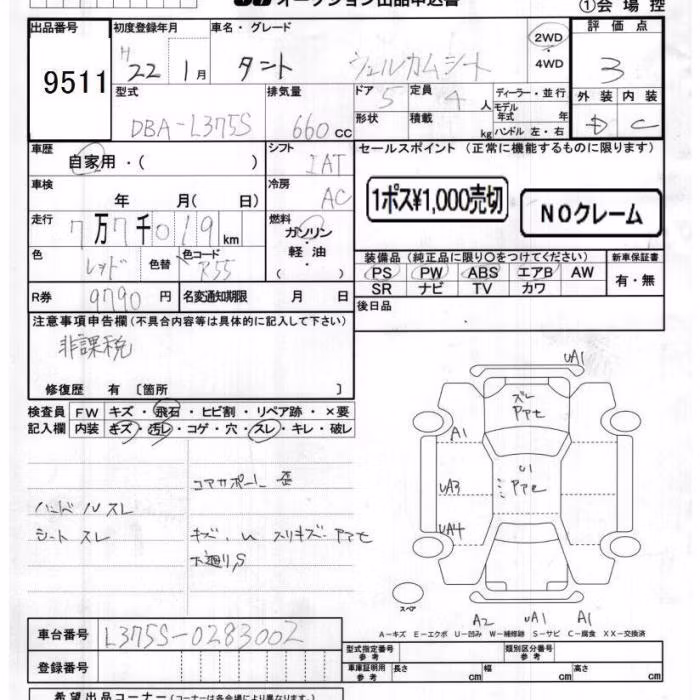 オークション出品申込書
①会場控
出品番号
9511
初度登録年月
H 22 1月
車名・グレード
タント ウェルカムシート
2WD
・
4WD
評価点
3
外装 内装
D C
型式
DBA-L375S
排気量
660cc
ドア
5
定員
4人
ディーラー・並行
モデル年式 年
形状
積載 kg
ハンドル 左・右
車歴
自家用・( )
シフト
IAT
車検
年 月( 日)
冷房
AC
走行
7万7千019km
燃料
ガソリン・
軽油・
( )
色
レッド
色替
色コード
R55
R券
9790円
名変通知期限 月 日
セールスポイント(正常に機能するものに限ります)
1ポス¥1,000売切
NOクレーム
装備品(純正品に限り○をつけてください)
PS PW ABS エアB AW
SR ナビ TV カワ
新車保証書
有・無
後日品
注意事項申告欄(不具合内容等は具体的に記入して下さい)
非課税
修復歴 有〔箇所 〕
検査員
記入欄
FW キズ・飛石・ヒビ割・リペア跡・×要
内装 キズ・汚レ・コゲ・穴・スレ・キレ・破レ
コアサポート 歪
ハンドルスレ
シートスレ
キズ、U スリキズ・アアセ
下廻りS
UA1
ズレ
アアセ
A1
U1
アアセ
UA3
UA4
スペア
A2 UA1 A1
A-キズ E-エクボ U-凹み W-補修跡 S-サビ C-腐食 XX-交換済
車台番号
L375S-0283002
登録番号
型式指定番号
参考
類別区分番号
参考
車庫証明用
参考
長さ cm
幅 cm
高さ cm
希望出品コーナー(コーナーは各会場により異なります)